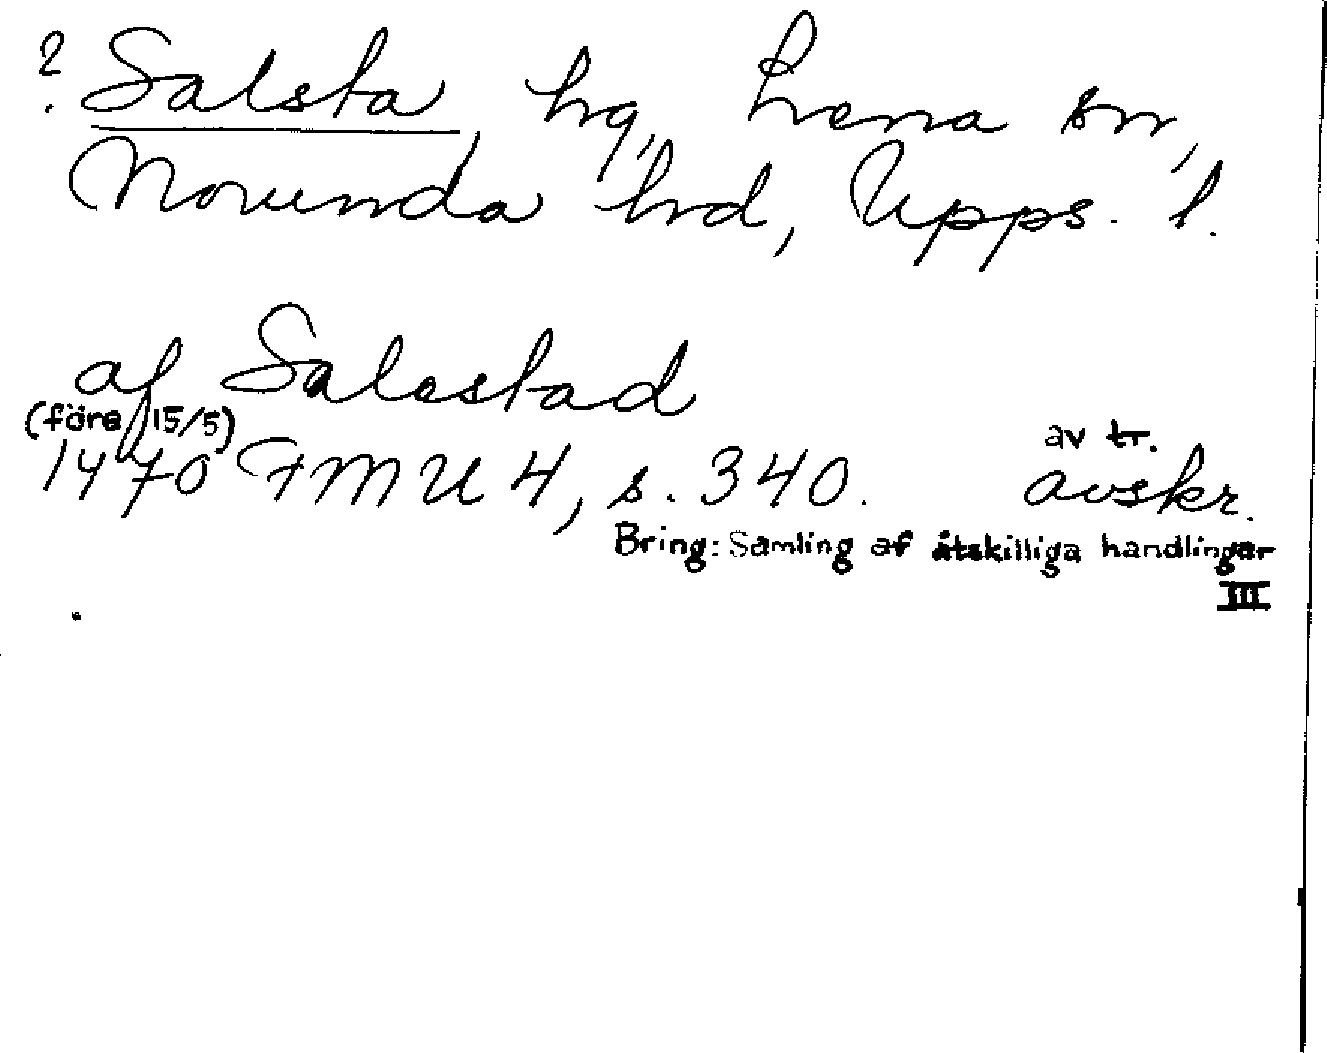 ? Salsta, hg, Lena sn,
Norunda hrd, Upps. l.
af Salestad
(före 15/5)
1470 FMU 4, s. 340. avskr.
av tr.
Bring: Samling af åtskilliga handlingar
III